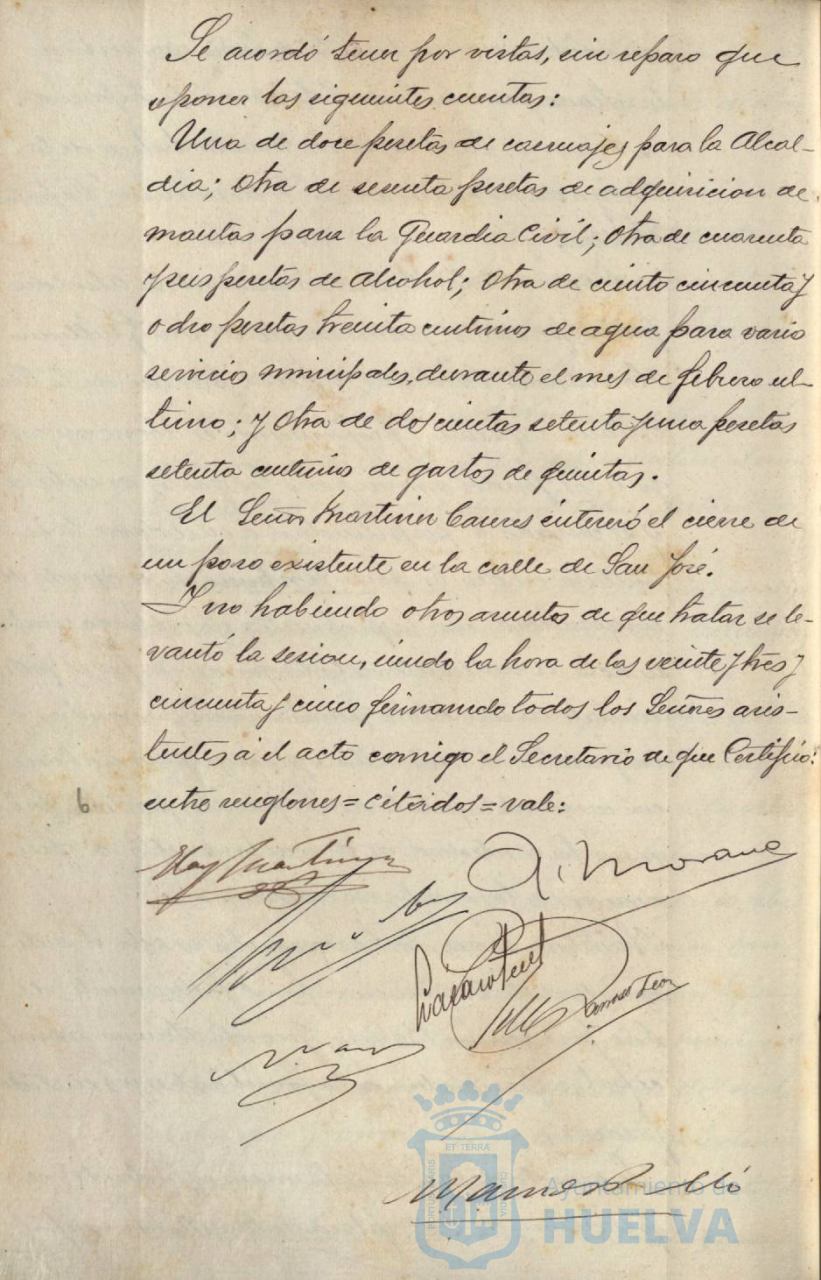 Se acordó tener por vistas, sin reparo que
oponer las siguientes cuentas:
Una de doce pesetas de carruajes para la Alcal-
dia; otra de sesenta pesetas de adquisicion de
mantas para la Guardia Civil; otra de cuarenta
y seis pesetas de Alcohol; otra de ciento cincuenta y
ocho pesetas treinta centimos de agua para varios
servicios municipales, durante el mes de febrero ul-
timo; y otra de doscientas setenta y una pesetas
setenta centimos de gastos de quintas.
El Señor Martinez Caceres interesó el cierre de
un pozo existente en la calle de San José.
Y no habiendo otros asuntos de que tratar se le-
vantó la sesion, siendo la hora de las veinte y tres y
cincuenta y cinco firmando todos los Señores asis-
tentes á el acto comigo el Secretario de que Certifico:
entre renglones = citados = vale:
6
A. Morano
ET TERRA
Ayuntamiento de
HUELVA